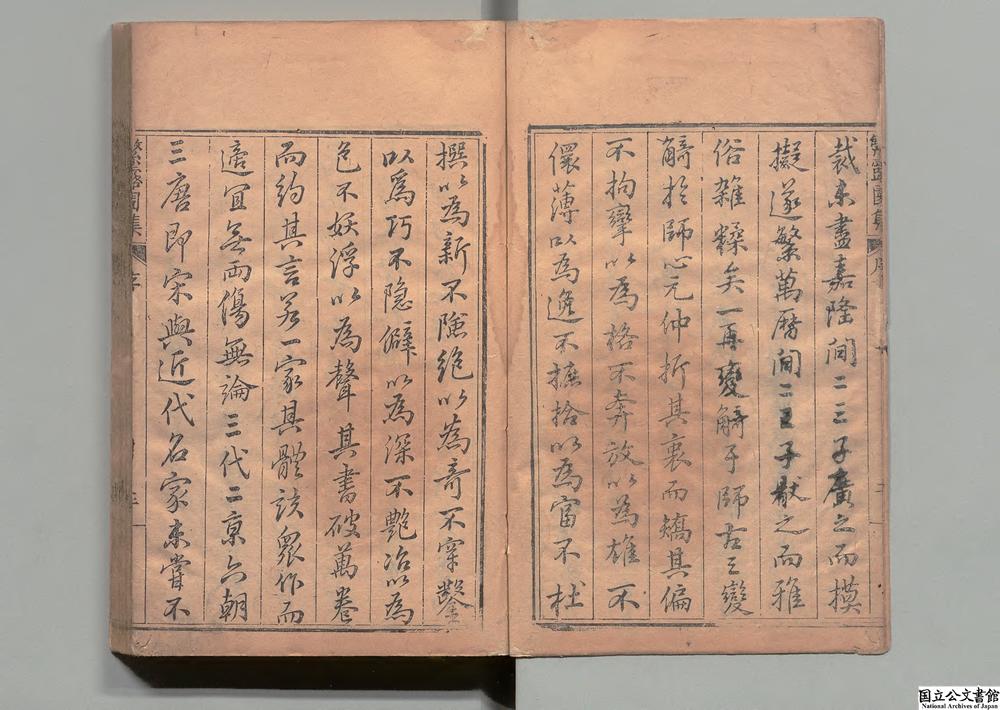 裁未盡嘉隆間二三子廣之而模
擬遂繁萬曆間二三子厭之而雅
俗雜糅矣一再變觭于師古三變
觭於師心元仲折其衷而矯其偏
不拘攣以為格不奔放以為雄不
儇薄以為逸不摭拾以為富不杜
撰以為新不險絶以為奇不穿鑿
以爲巧不隐僻以為深不艶冶以為
色不妖浮以為聲其書破萬卷
而約其言若一家其體該衆作而
適宜無兩傷無論三代二京六朝
三唐即宋與近代名家未嘗不
序
国立公文書館
National Archives of Japan